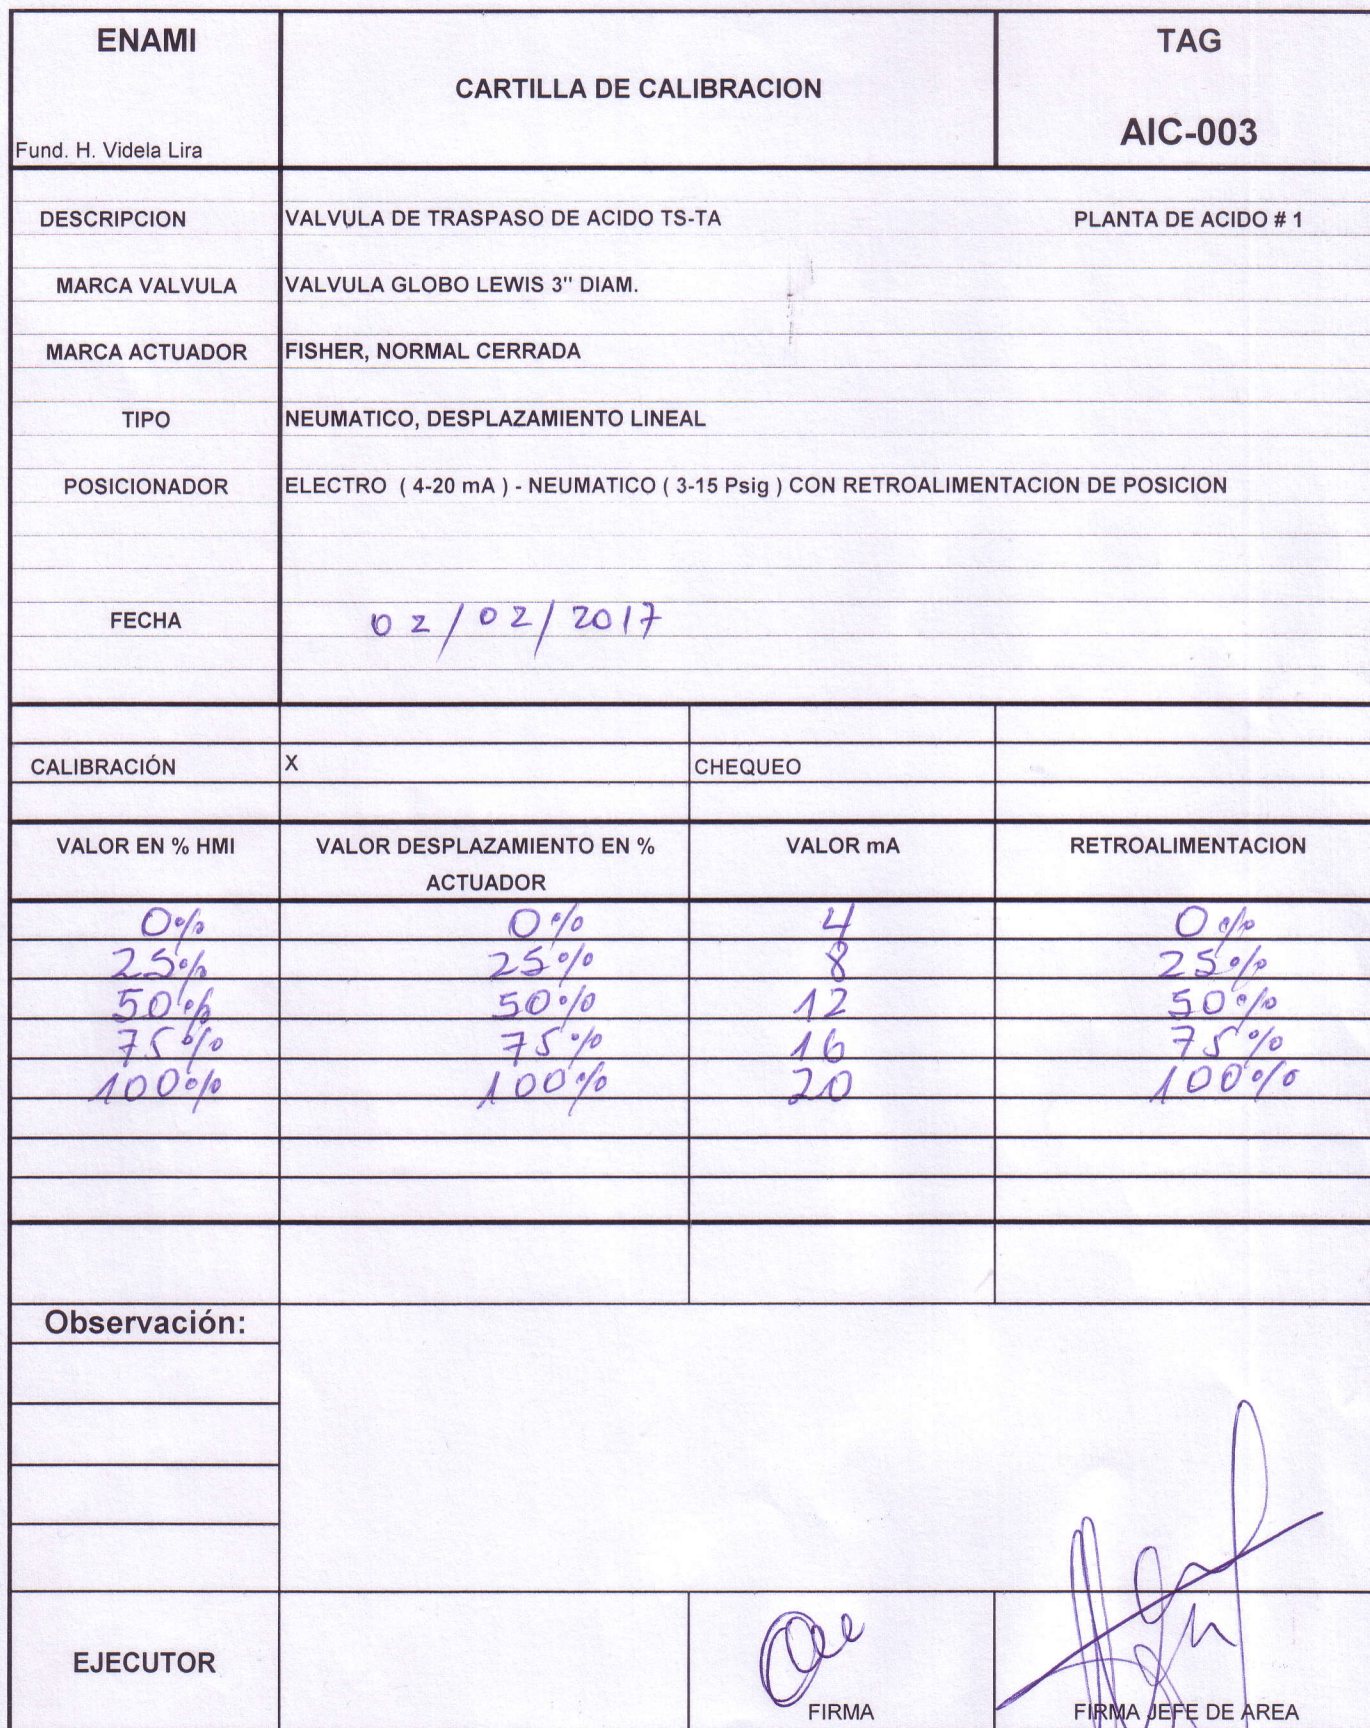 ENAMI
Fund. H. Videla Lira
CARTILLA DE CALIBRACION
TAG
AIC-003
DESCRIPCION VALVULA DE TRASPASO DE ACIDO TS-TA PLANTA DE ACIDO # 1
MARCA VALVULA VALVULA GLOBO LEWIS 3" DIAM.
MARCA ACTUADOR FISHER, NORMAL CERRADA
TIPO NEUMATICO, DESPLAZAMIENTO LINEAL
POSICIONADOR ELECTRO ( 4-20 mA ) - NEUMATICO ( 3-15 Psig ) CON RETROALIMENTACION DE POSICION
FECHA 02/02/2017
CALIBRACIÓN X CHEQUEO
VALOR EN % HMI VALOR DESPLAZAMIENTO EN % ACTUADOR VALOR mA RETROALIMENTACION
0% 0% 4 0%
25% 25% 8 25%
50% 50% 12 50%
75% 75% 16 75%
100% 100% 20 100%
Observación:
EJECUTOR
FIRMA FIRMA JEFE DE AREA